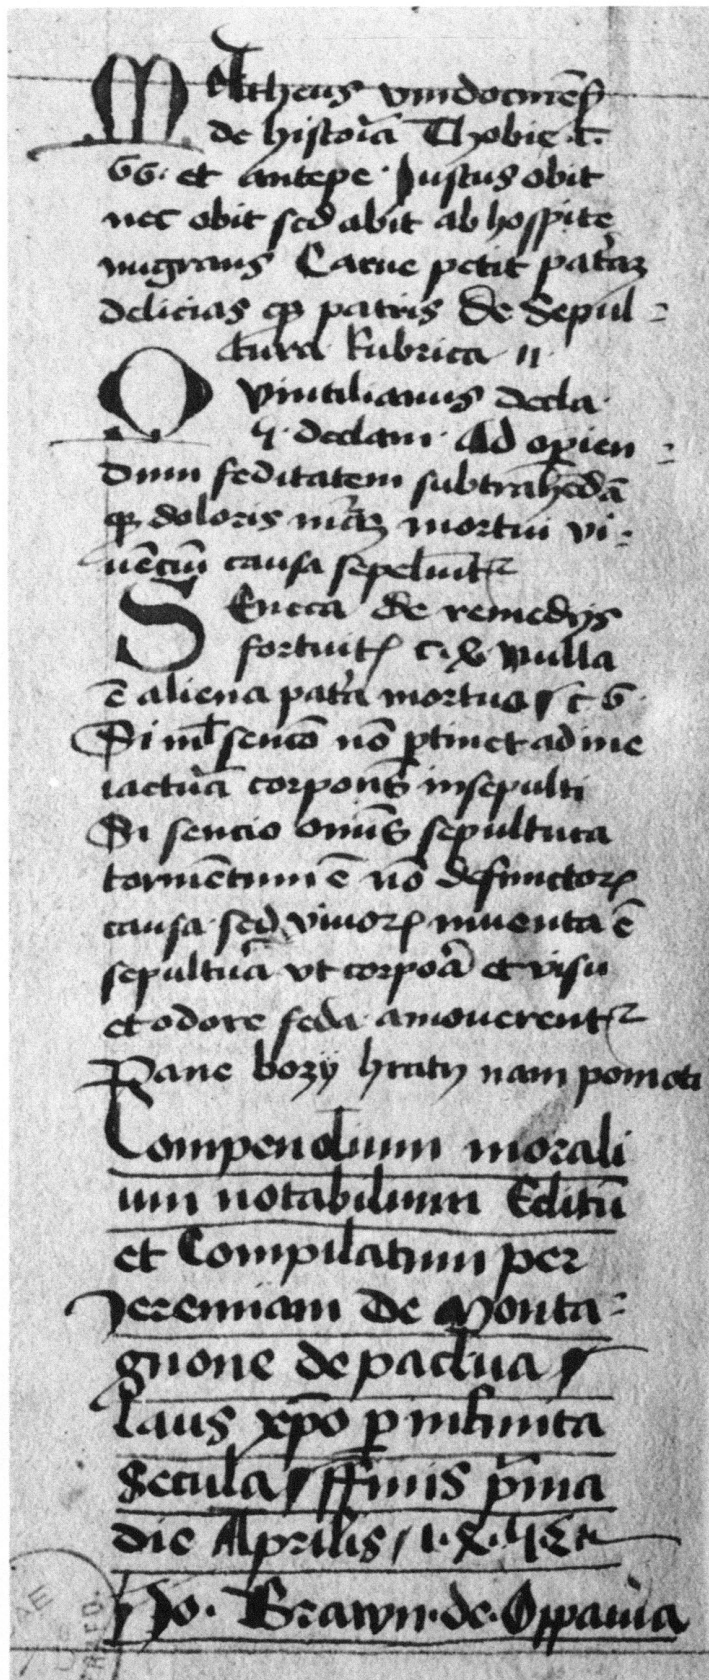 MAtheus vindocinēs
de histoīa Thobie · c ·
66 · et antepe · Justus obit
nec obit sed abit ab hospite
migrans Carne petit pat'aꝫ
delicias qꝫ patris De Sepul=
tura · Rubrica · 11 ·
QVintilianus decla ·
4 · declam · Ad opien=
dum feditatem subtrahēdā
qꝫ doloris mꝫ mortui vi=
uēciū causa sepeliūtr
SEneca de remedijs
fortuitꝭ c · x · Nulla
ē aliena pat'a mortuo / c 6 ·
Si nl' sencio nō ptinet ad me
iactuā corporis insepulti
Si sencio omīs sepultura
tormētum ē nō defunctoꝝ
causa sed viuoꝝ inuenta ē
sepultuā vt corpoā et visu
et odore feda amouerentr
Pane bozy hraty nam pomoti
Compendium morali
um notabilium Editū
et Compilatum per
Jeremiam de Monta=
gnone de padua /
Laus xpo p infinita
Secula / ffinis pma
die Aprilis /
Jo · Brawn · de · Oppauia